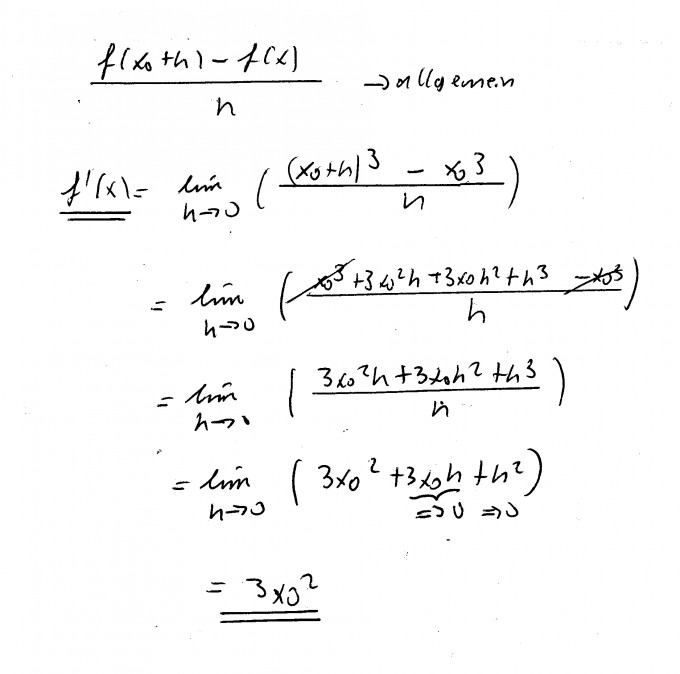 f(x₀+h) - f(x) / h → allgemein
f'(x) = lim h→0 ( (x₀+h)³ - x₀³ / h )
= lim h→0 ( x₀³ + 3x₀²h + 3x₀h² + h³ - x₀³ / h )
= lim h→0 ( 3x₀²h + 3x₀h² + h³ / h )
= lim h→0 ( 3x₀² + 3x₀h + h² )
⇒0 ⇒0
= 3x₀²